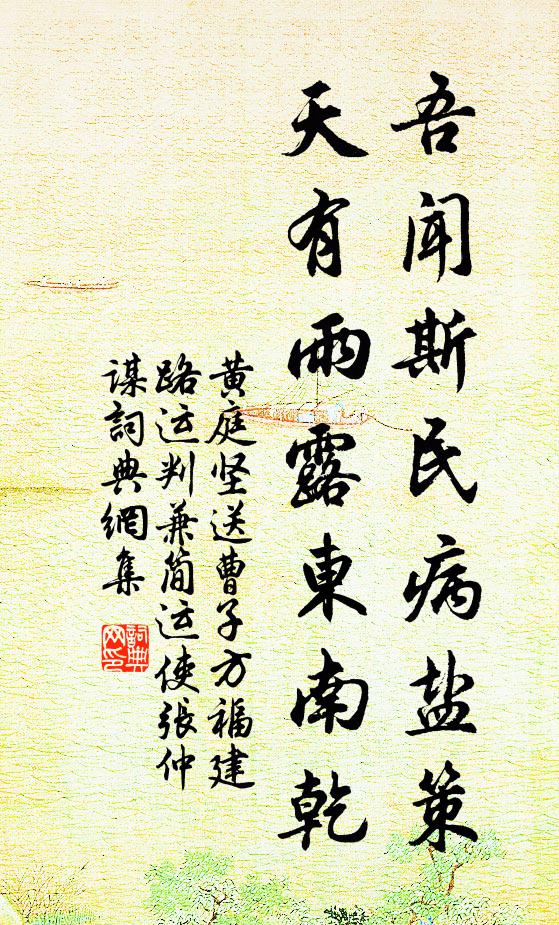 吾闻斯民病盐策
天有雨露東南乾
黄庭坚送曹子方福建
路运判兼简运使張仲
谋詞典網集
詞典網印